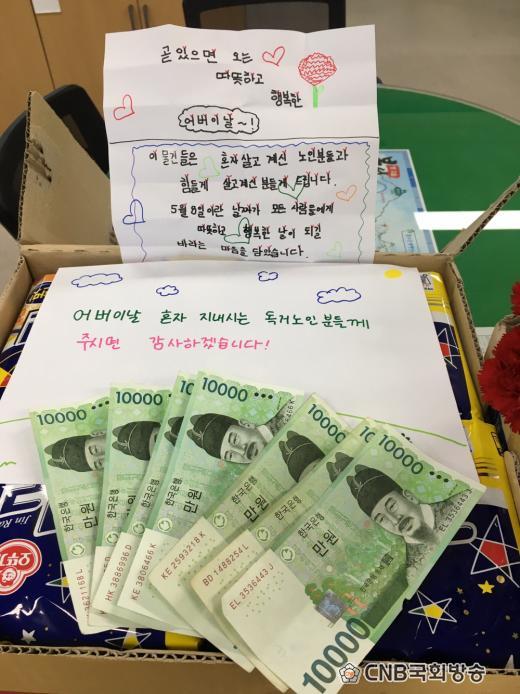 곧 있으면 오는
따뜻하고
행복한
어버이날~!
이 물건들은 혼자 살고 계신 노인분들과
힘들게 살고계신 분들께 드립니다.
5월 8일이란 날짜가 모든 사람들에게
따뜻하고 행복한 날이 되길
바라는 마음을 담았습니다.
어버이날 혼자 지내시는 독거노인분들께
주시면 감사하겠습니다!
10000
10000
10000
10000
10000
한국은행
만원
한국은행
만원
한국은행
만원
한국은행
만원
한국은행
만원
HK 3886996 D
KE 3806466 K
KE 2593218 K
BD 1488254 L
EL 3536443 J
EL 3536443 J
10000
진라
오뚜기
CNB국회방송